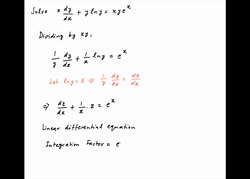 Solve x dy/dx + y ln y = xy e^x
Dividing by xy,
1/y dy/dx + 1/x ln y = e^x
Let ln y = z ⇒ 1/y dy/dx = dz/dx
⇒ dz/dx + 1/x . z = e^x
Linear differential equation
Integration Factor = e